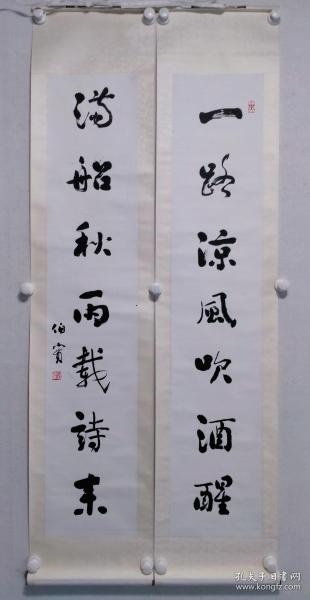 一路涼風吹酒醒
滿船秋雨載詩來
伯實
孔夫子旧书网
www.kongfz.com